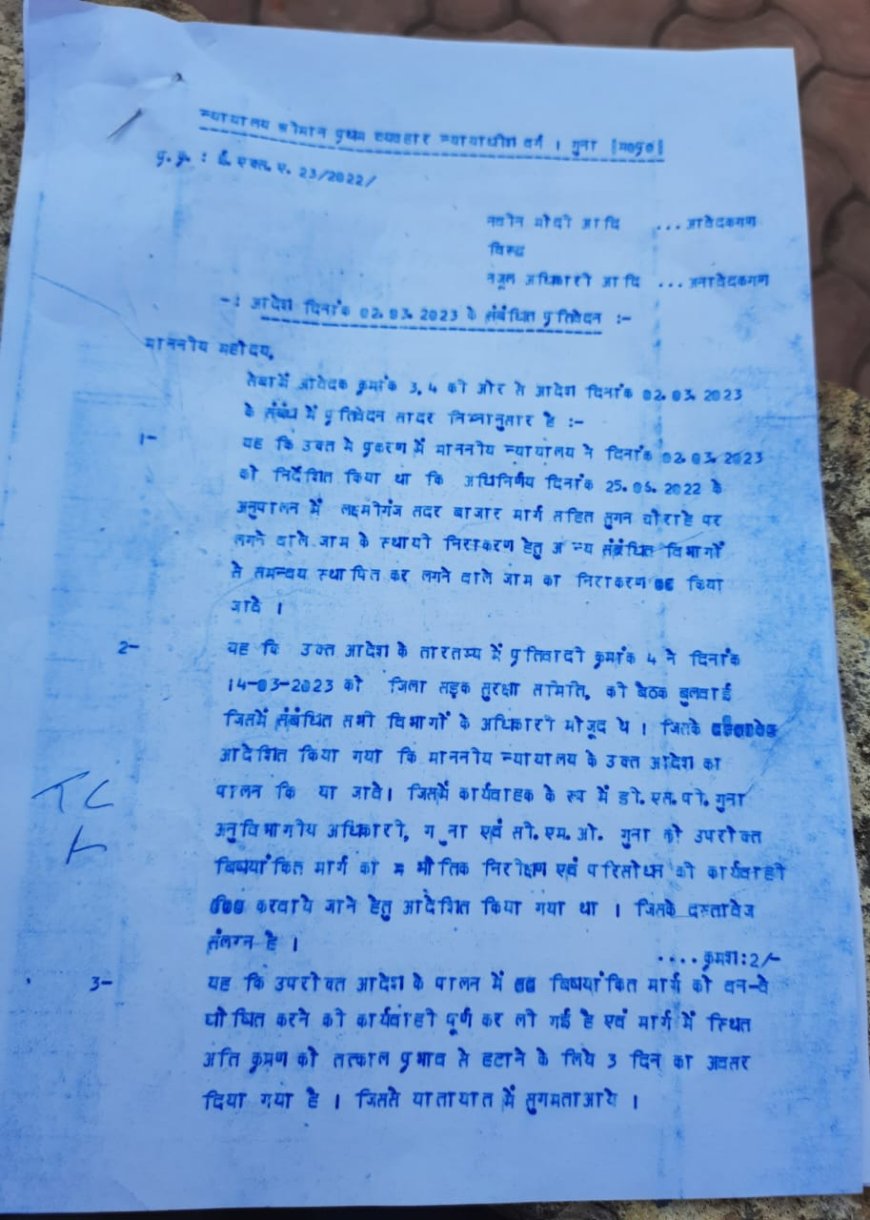 न्यायालय श्रीमान प्रथम व्यवहार न्यायाधीश वर्ग 1 गुना [म०प्र०]
प्र.क्र. : ई. एक्स. ए. 23/2022/
नवीन मोदी आदि ...आवेदकगण
विरुद्ध
नजूल अधिकारी आदि ...अनावेदकगण
-: आदेश दिनांक 02.03.2023 के संबंधित प्रतिवेदन :-
माननीय महोदय,
सेवामें आवेदक क्रमांक 3,4 की ओर से आदेश दिनांक 02.03.2023
के संबंध में प्रतिवेदन सादर निम्नानुसार है :-
1- यह कि उक्त मे प्रकरण में माननीय न्यायालय ने दिनांक 02.03.2023
को निर्देशित किया था कि अधिनिर्णय दिनांक 25.06.2022 के
अनुपालन में लक्ष्मीगंज सदर बाजार मार्ग सहित सुगन चौराहे पर
लगने वाले जाम के स्थायी निराकरण हेतु अन्य संबंधित विभागों
से समन्वय स्थापित कर लगने वाले जाम का निराकरण किया
जावे ।
2- यह कि उक्त आदेश के तारतम्य में प्रतिवादी क्रमांक 4 ने दिनांक
14-03-2023 को जिला सड़क सुरक्षा समिति, की बैठक बुलवाई
जिसमें संबंधित सभी विभागों के अधिकारी मौजूद थे । जिसके
आदेशित किया गया कि माननीय न्यायालय के उक्त आदेश का
पालन कि या जावे। जिसमें कार्यवाहक के रूप में डी.एस.पी. गुना
अनुविभागीय अधिकारी, गुना एवं सी.एम.ओ. गुना को उपरोक्त
विषयांकित मार्ग का म भौतिक निरीक्षण एवं परिसीधन की कार्यवाही
करवाये जाने हेतु आदेशित किया गया था । जिसके दस्तावेज
संलग्न है ।
....क्रमश:2/-
3- यह कि उपरोक्त आदेश के पालन में विषयांकित मार्ग को वन-वे
घोषित करने की कार्यवाही पूर्ण कर ली गई है एवं मार्ग में स्थित
अतिक्रमण को तत्काल प्रभाव से हटाने के लिये 3 दिन का अवसर
दिया गया है । जिससे यातायात में सुगमता आये ।
TC